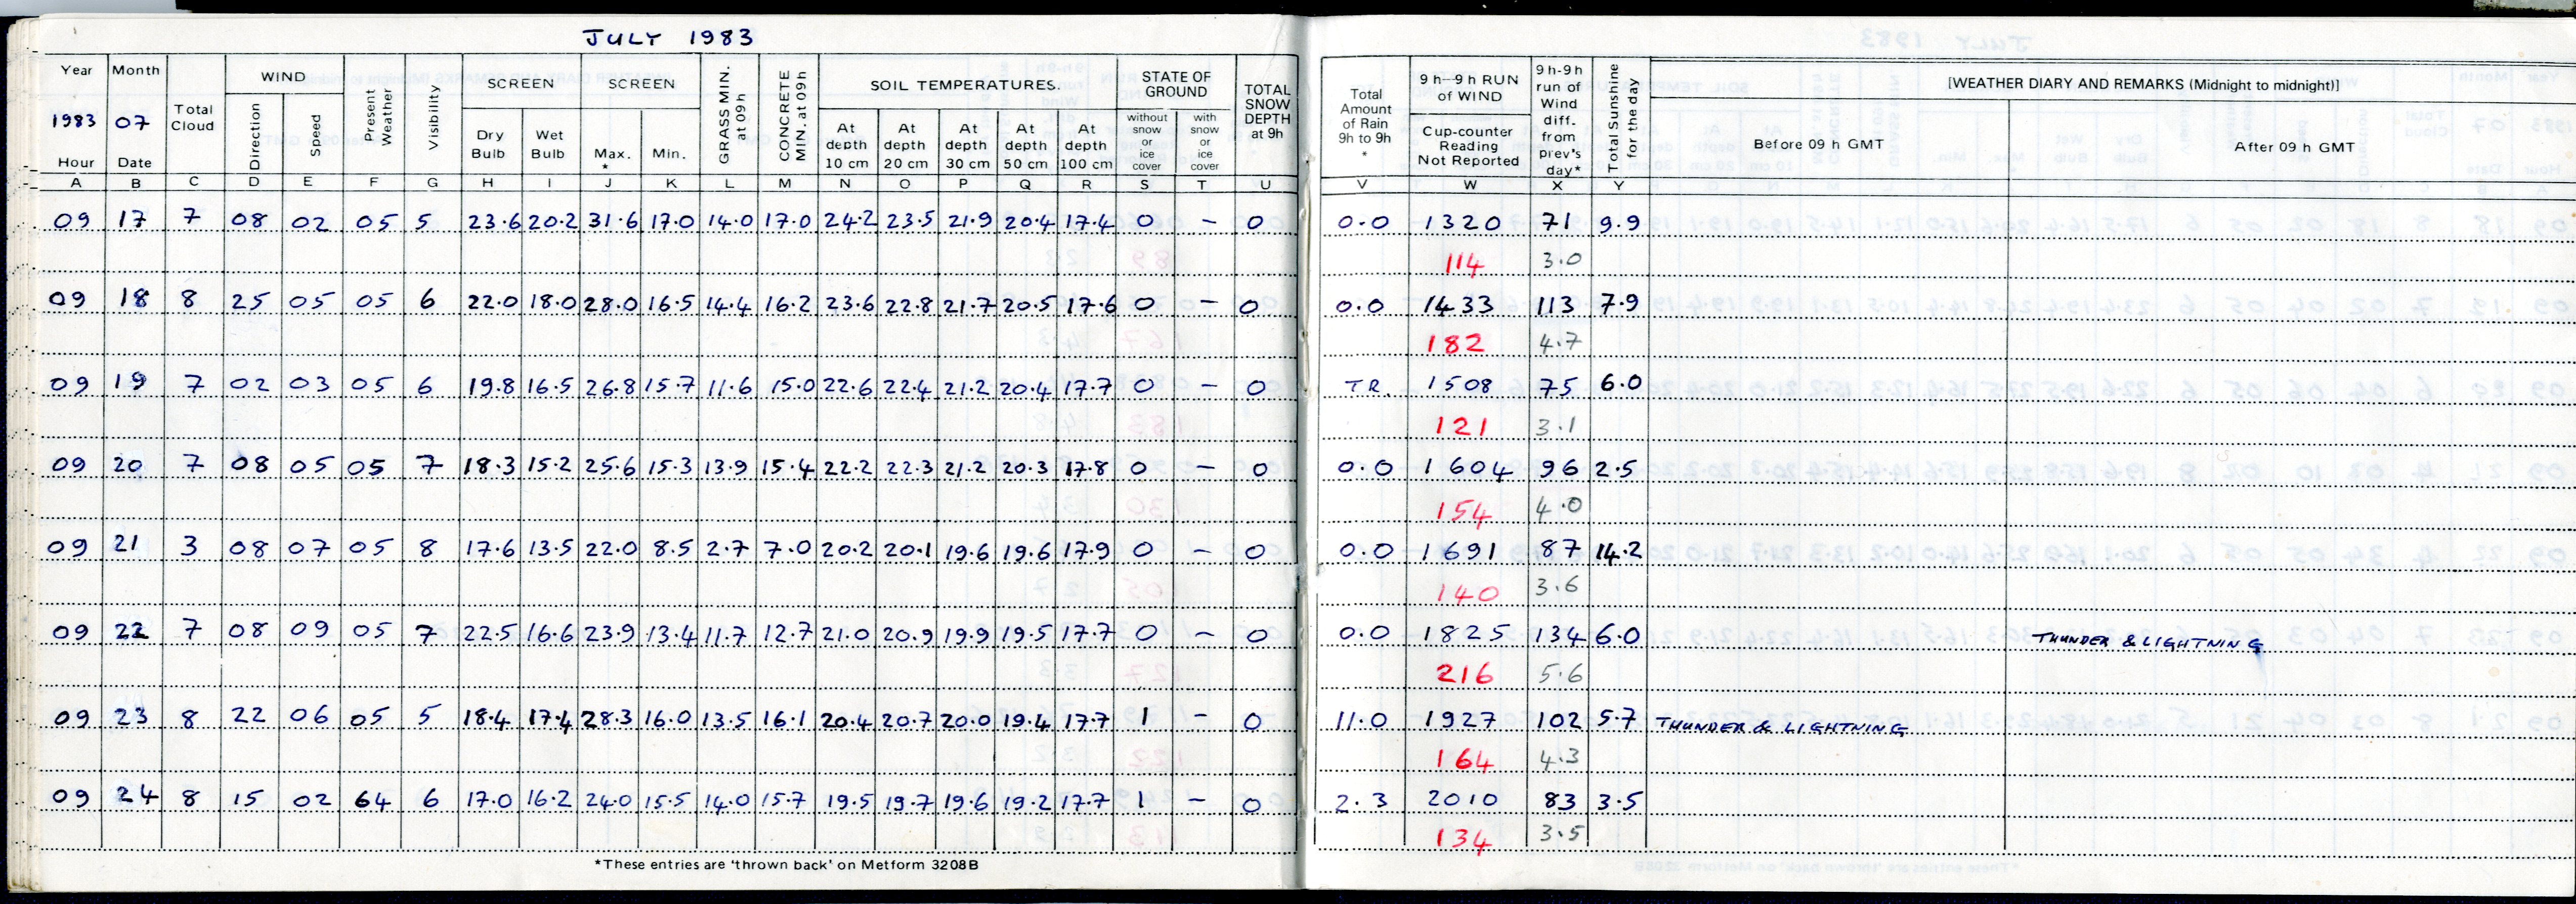 JULY 1983
Year Month WIND SCREEN SCREEN SOIL TEMPERATURES. STATE OF GROUND
1983 07 Total Cloud Direction Speed Present Weather Visibility Dry Bulb Wet Bulb Max. * Min. GRASS MIN. at 09h CONCRETE MIN. at 09h At depth 10 cm At depth 20 cm At depth 30 cm At depth 50 cm At depth 100 cm without snow or ice cover with snow or ice cover TOTAL SNOW DEPTH at 9h
Hour Date
Total Amount of Rain 9h to 9h * 9 h–9 h RUN of WIND Cup-counter Reading Not Reported 9 h-9h run of Wind diff. from prev's day* Total Sunshine for the day [WEATHER DIARY AND REMARKS (Midnight to midnight)]
Before 09 h GMT After 09 h GMT
A B C D E F G H I J K L M N O P Q R S T U V W X Y
09 17 7 08 02 05 5 23.6 20.2 31.6 17.0 14.0 17.0 24.2 23.5 21.9 20.4 17.4 0 – 0 0.0 1320 71 9.9
114 3.0
09 18 8 25 05 05 6 22.0 18.0 28.0 16.5 14.4 16.2 23.6 22.8 21.7 20.5 17.6 0 – 0 0.0 1433 113 7.9
182 4.7
09 19 7 02 03 05 6 19.8 16.5 26.8 15.7 11.6 15.0 22.6 22.4 21.2 20.4 17.7 0 – 0 TR. 1508 75 6.0
121 3.1
09 20 7 08 05 05 7 18.3 15.2 25.6 15.3 13.9 15.4 22.2 22.3 21.2 20.3 17.8 0 – 0 0.0 1604 96 2.5
154 4.0
09 21 3 08 07 05 8 17.6 13.5 22.0 8.5 2.7 7.0 20.2 20.1 19.6 19.6 17.9 0 – 0 0.0 1691 87 14.2
140 3.6
09 22 7 08 09 05 7 22.5 16.6 23.9 13.4 11.7 12.7 21.0 20.9 19.9 19.5 17.7 0 – 0 0.0 1825 134 6.0 THUNDER & LIGHTNING
216 5.6
09 23 8 22 06 05 5 18.4 17.4 28.3 16.0 13.5 16.1 20.4 20.7 20.0 19.4 17.7 1 – 0 11.0 1927 102 5.7 THUNDER & LIGHTNING
164 4.3
09 24 8 15 02 64 6 17.0 16.2 24.0 15.5 14.0 15.7 19.5 19.7 19.6 19.2 17.7 1 – 0 2.3 2010 83 3.5
134 3.5
*These entries are 'thrown back' on Metform 3208B